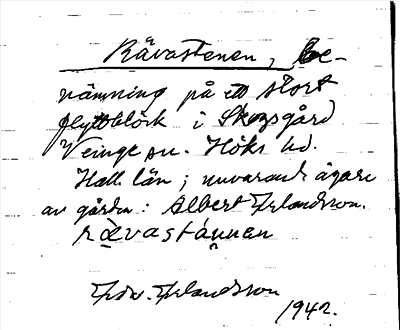 Rävastenen, be-
nämning på ett stort
flyttblock i Skogsgård
Veinge sn. Höks hd.
Hall. län; nuvarande ägare
av gården: Albert Erlandsson.
rävastánnen
Edv. Erlandsson
1942.